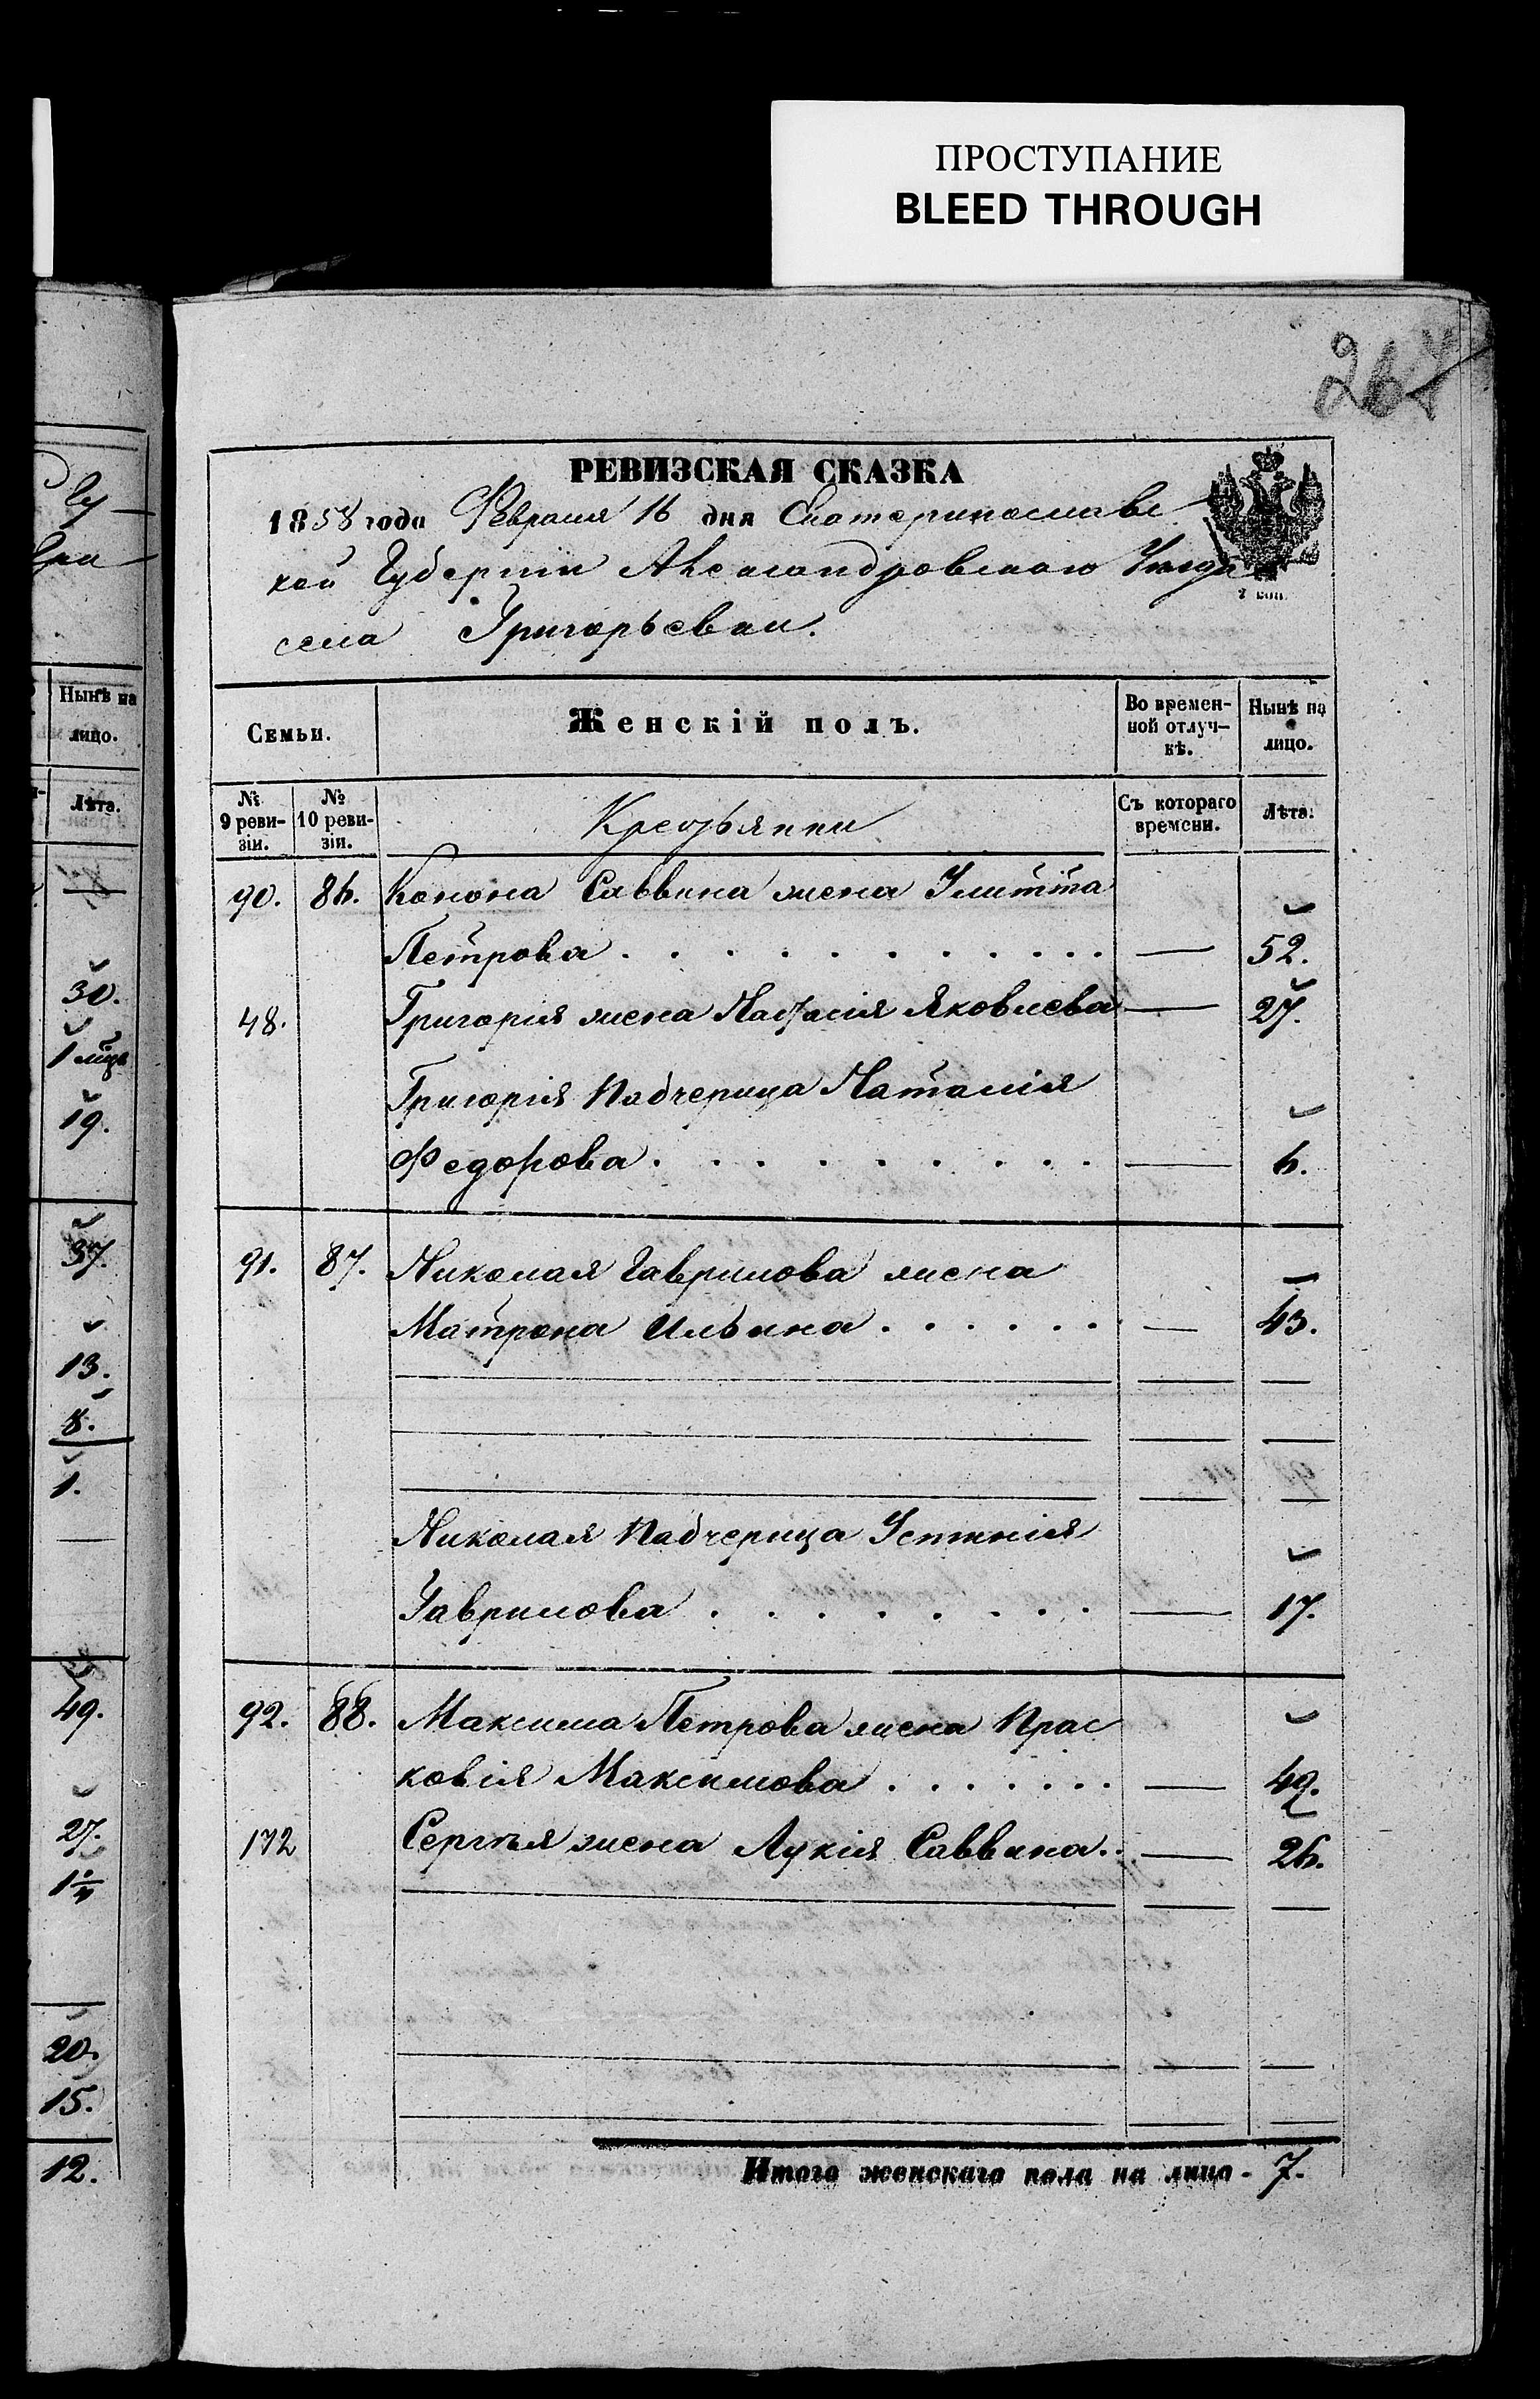 ПРОСТУПАНИЕ
BLEED THROUGH
РЕВИЗСКАЯ СКАЗКА
1858 года Февраля 16 дня Екатеринославс
кой Губерніи Александровскаго Уезда
села Григорьевки.
Семьи. Женскій полъ. Во времен-ной отлуч-кѣ. Нынѣ на лицо.
№ 9 реви-зіи. № 10 реви-зіи. Крестьянки Съ котораго времени. Лѣта.
90. 86. Конона Саввина жена Улитта
Петрова — 52.
48. Григорія жена Настасія Яковлева — 27.
Григорія Падчерица Наталія
Федорова — 6.
91. 87. Николая Гаврилова жена
Матрона Ильина — 43.
Николая Падчерица Устинія
Гаврилова — 17.
92. 88. Максима Петрова жена Прас
ковія Максимова — 49.
172 Сергѣя жена Лукія Саввина — 26.
Итого женскаго пола на лицо - 7.
Нынѣ на
лицо.
Лѣта.
30.
19.
37.
13.
8.
1.
49.
27.
20.
15.
12.